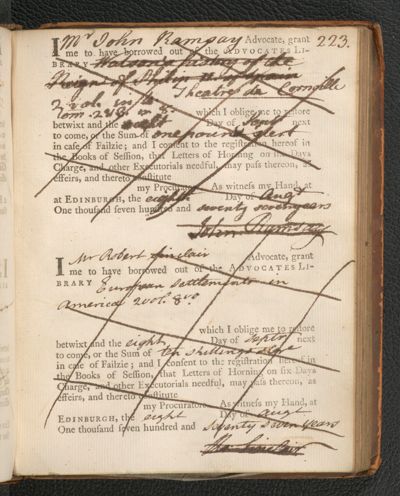 223.
I Mr John Ramsay Advocate, grant
me to have borrowed out of the ADVOCATES LI-
BRARY Watson's history of the
Reign of Philip 2 of Spain
Theatre de Corneille
2 vol.
tom. 2 & 8 in 8° which I oblige me to reſtore
betwixt and the eight Day of Septr next
to come, or the Sum of one pound ster
in caſe of Failzie; and I conſent to the regiſtration hereof in
the Books of Seſſion, that Letters of Horning on ſix Days
Charge, and other Executorials needful, may paſs thereon, as
effeirs, and thereto conſtitute
my Procurators. As witneſs my Hand, at
at EDINBURGH, the eight Day of Augt
One thouſand ſeven hundred and seventy sevenyears
John Ramsay
I Mr Robert Sinclair Advocate, grant
me to have borrowed out of the ADVOCATES LI-
BRARY European settlements in
America 2 vol: 8vo
which I oblige me to reſtore
betwixt and the eight, Day of Septr next
to come, or the Sum of ten shillings
in caſe of Failzie; and I conſent to the regiſtration hereof in
the Books of Seſſion, that Letters of Horning on ſix Days
Charge, and other Executorials needful, may paſs thereon, as
effeirs, and thereto conſtitute
my Procurators. As witneſs my Hand, at
EDINBURGH, the eight Day of Augt
One thouſand ſeven hundred and seventy seven years
Sinclair